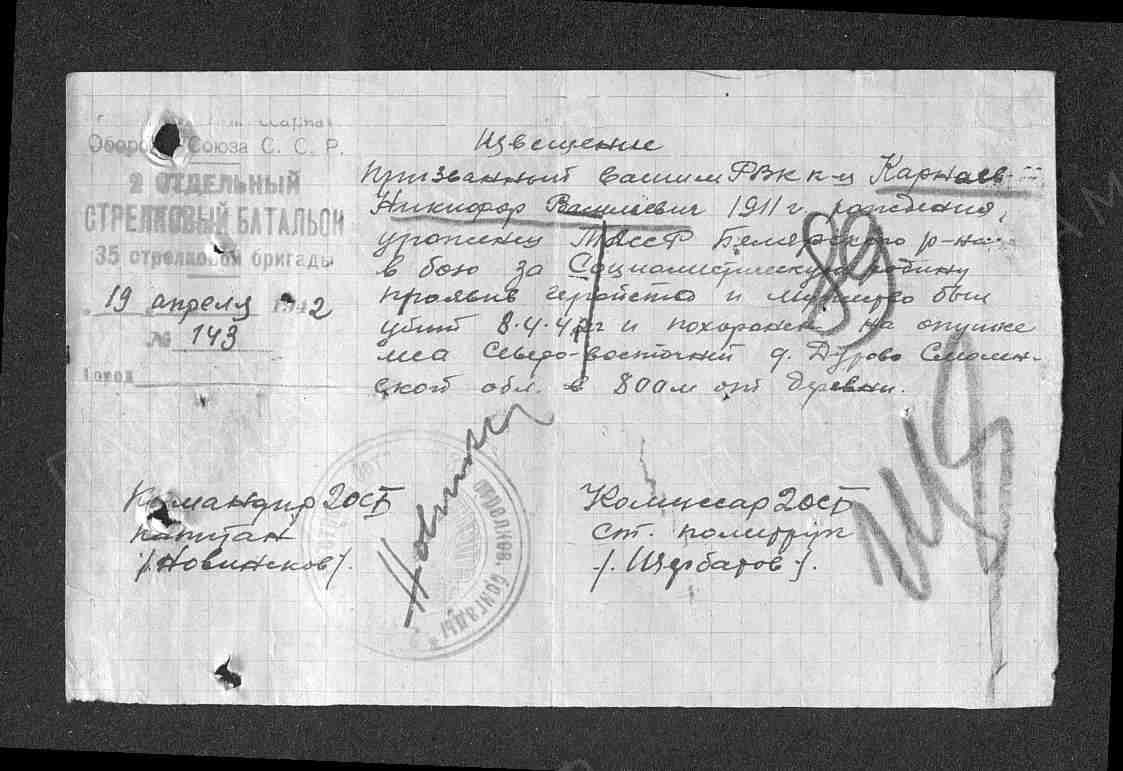 Обороны Союза С. С. Р.
2 ОТДЕЛЬНЫЙ
СТРЕЛКОВЫЙ БАТАЛЬОН
35 стрелковой бригады
19 апреля 1942
№ 143
Город
Извещение
Призванный вашим РВК к-ц Карнаев
Никифор Васильевич 1911 г рождения,
уроженец МАССР р-на
в бою за Социалистическую родину
проявив геройство и мужество был
убит 8.4.42г и похоронен на опушке
леса Северо-восточний д. Дурово Смолен-
ской обл. в 800м от деревни.
89
Командир 2ОСБ
капитан
/Новинсков/.
Комиссар 2ОСБ
ст. политрук
/.Щербатов/.
стрелков. бригады